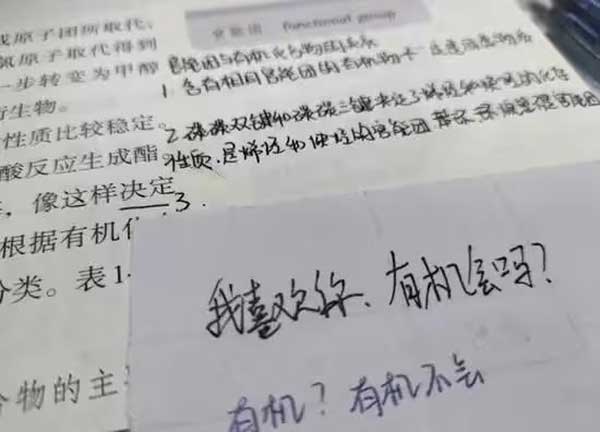 或原子团所取代,
官能团 functional group
氢原子取代得到
官能团与有机化合物的关系
一步转变为甲醇
1. 含有相同官能团的有机物不一定是同类物质
衍生物。
性质比较稳定。
2. 碳碳双键和碳碳三键决定了烯烃和炔烃的化学
酸反应生成酯。
性质,是烯烃和炔烃的官能团
,像这样决定
3.
根据有机化
分类。表1-
我喜欢你、有机会吗?
合物的主要
有机?有机不会